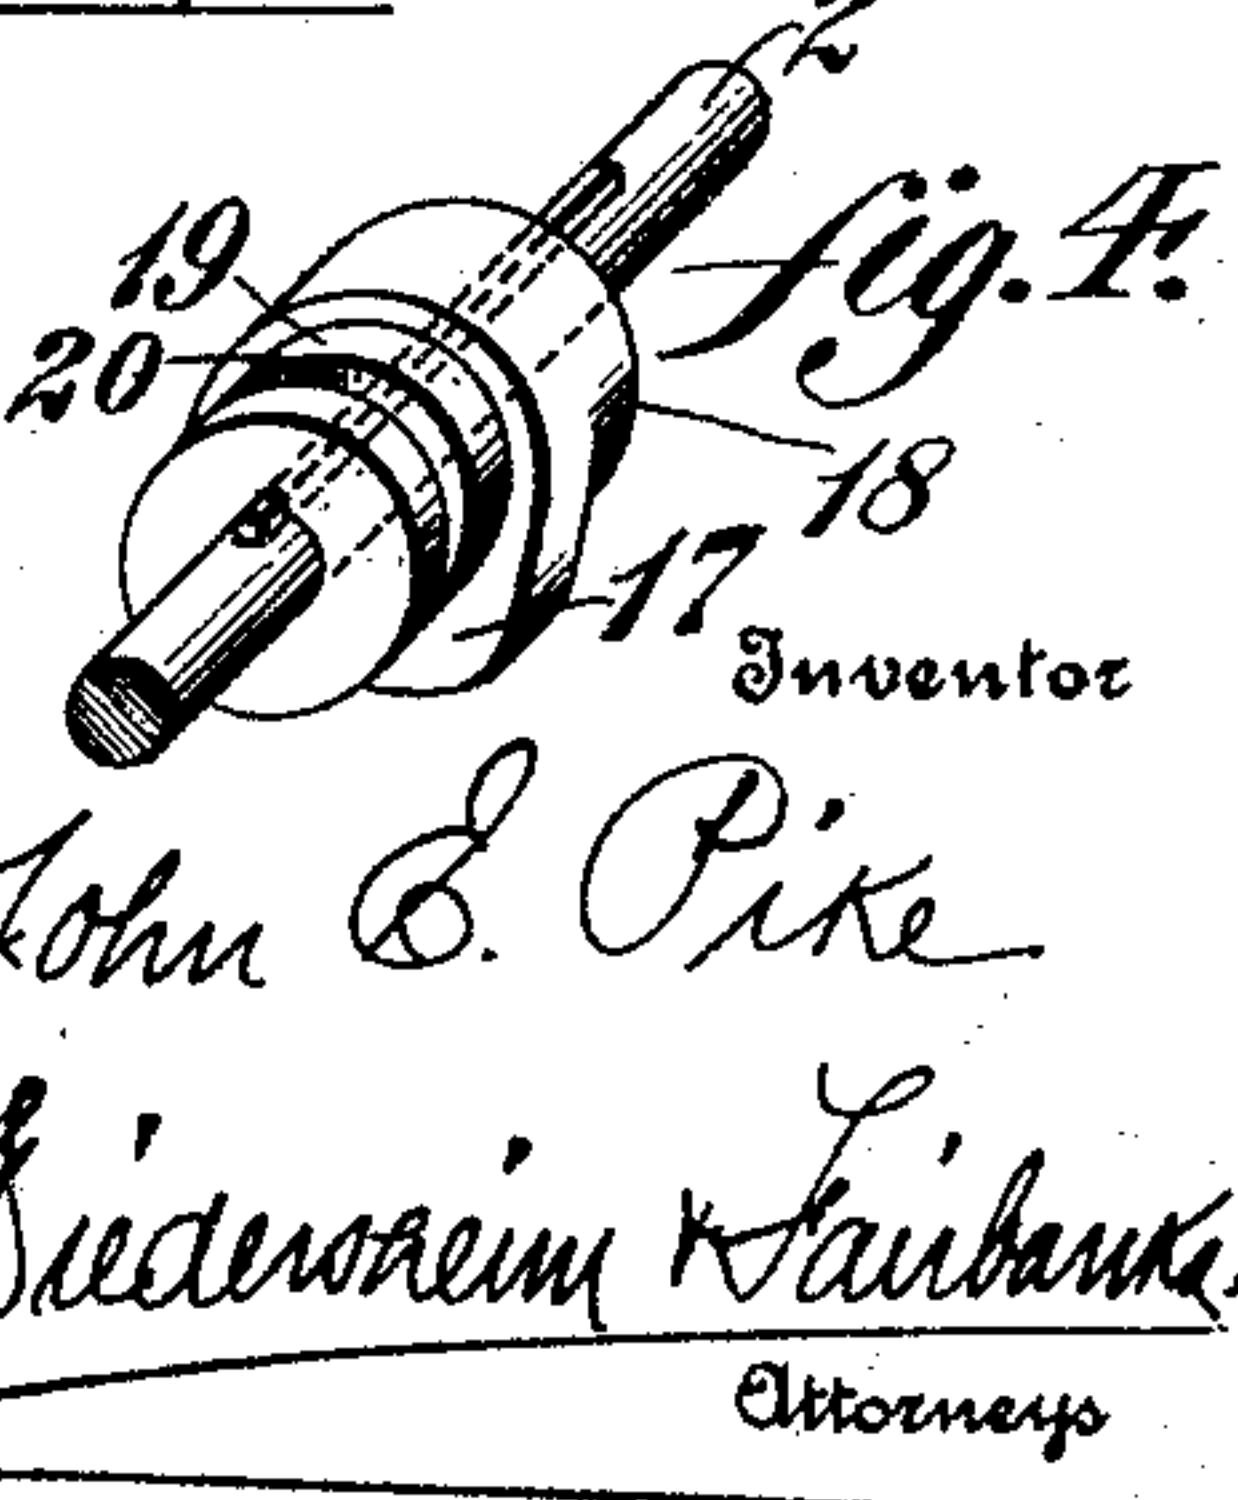 2
fig. 4.
19
20
18
17
Inventor
John E. Pike
Biedersheim & Fairbanks.
Attorneys